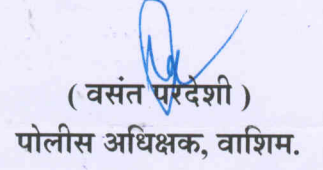 ( वसंत परदेशी )
पोलीस अधिक्षक, वाशिम.